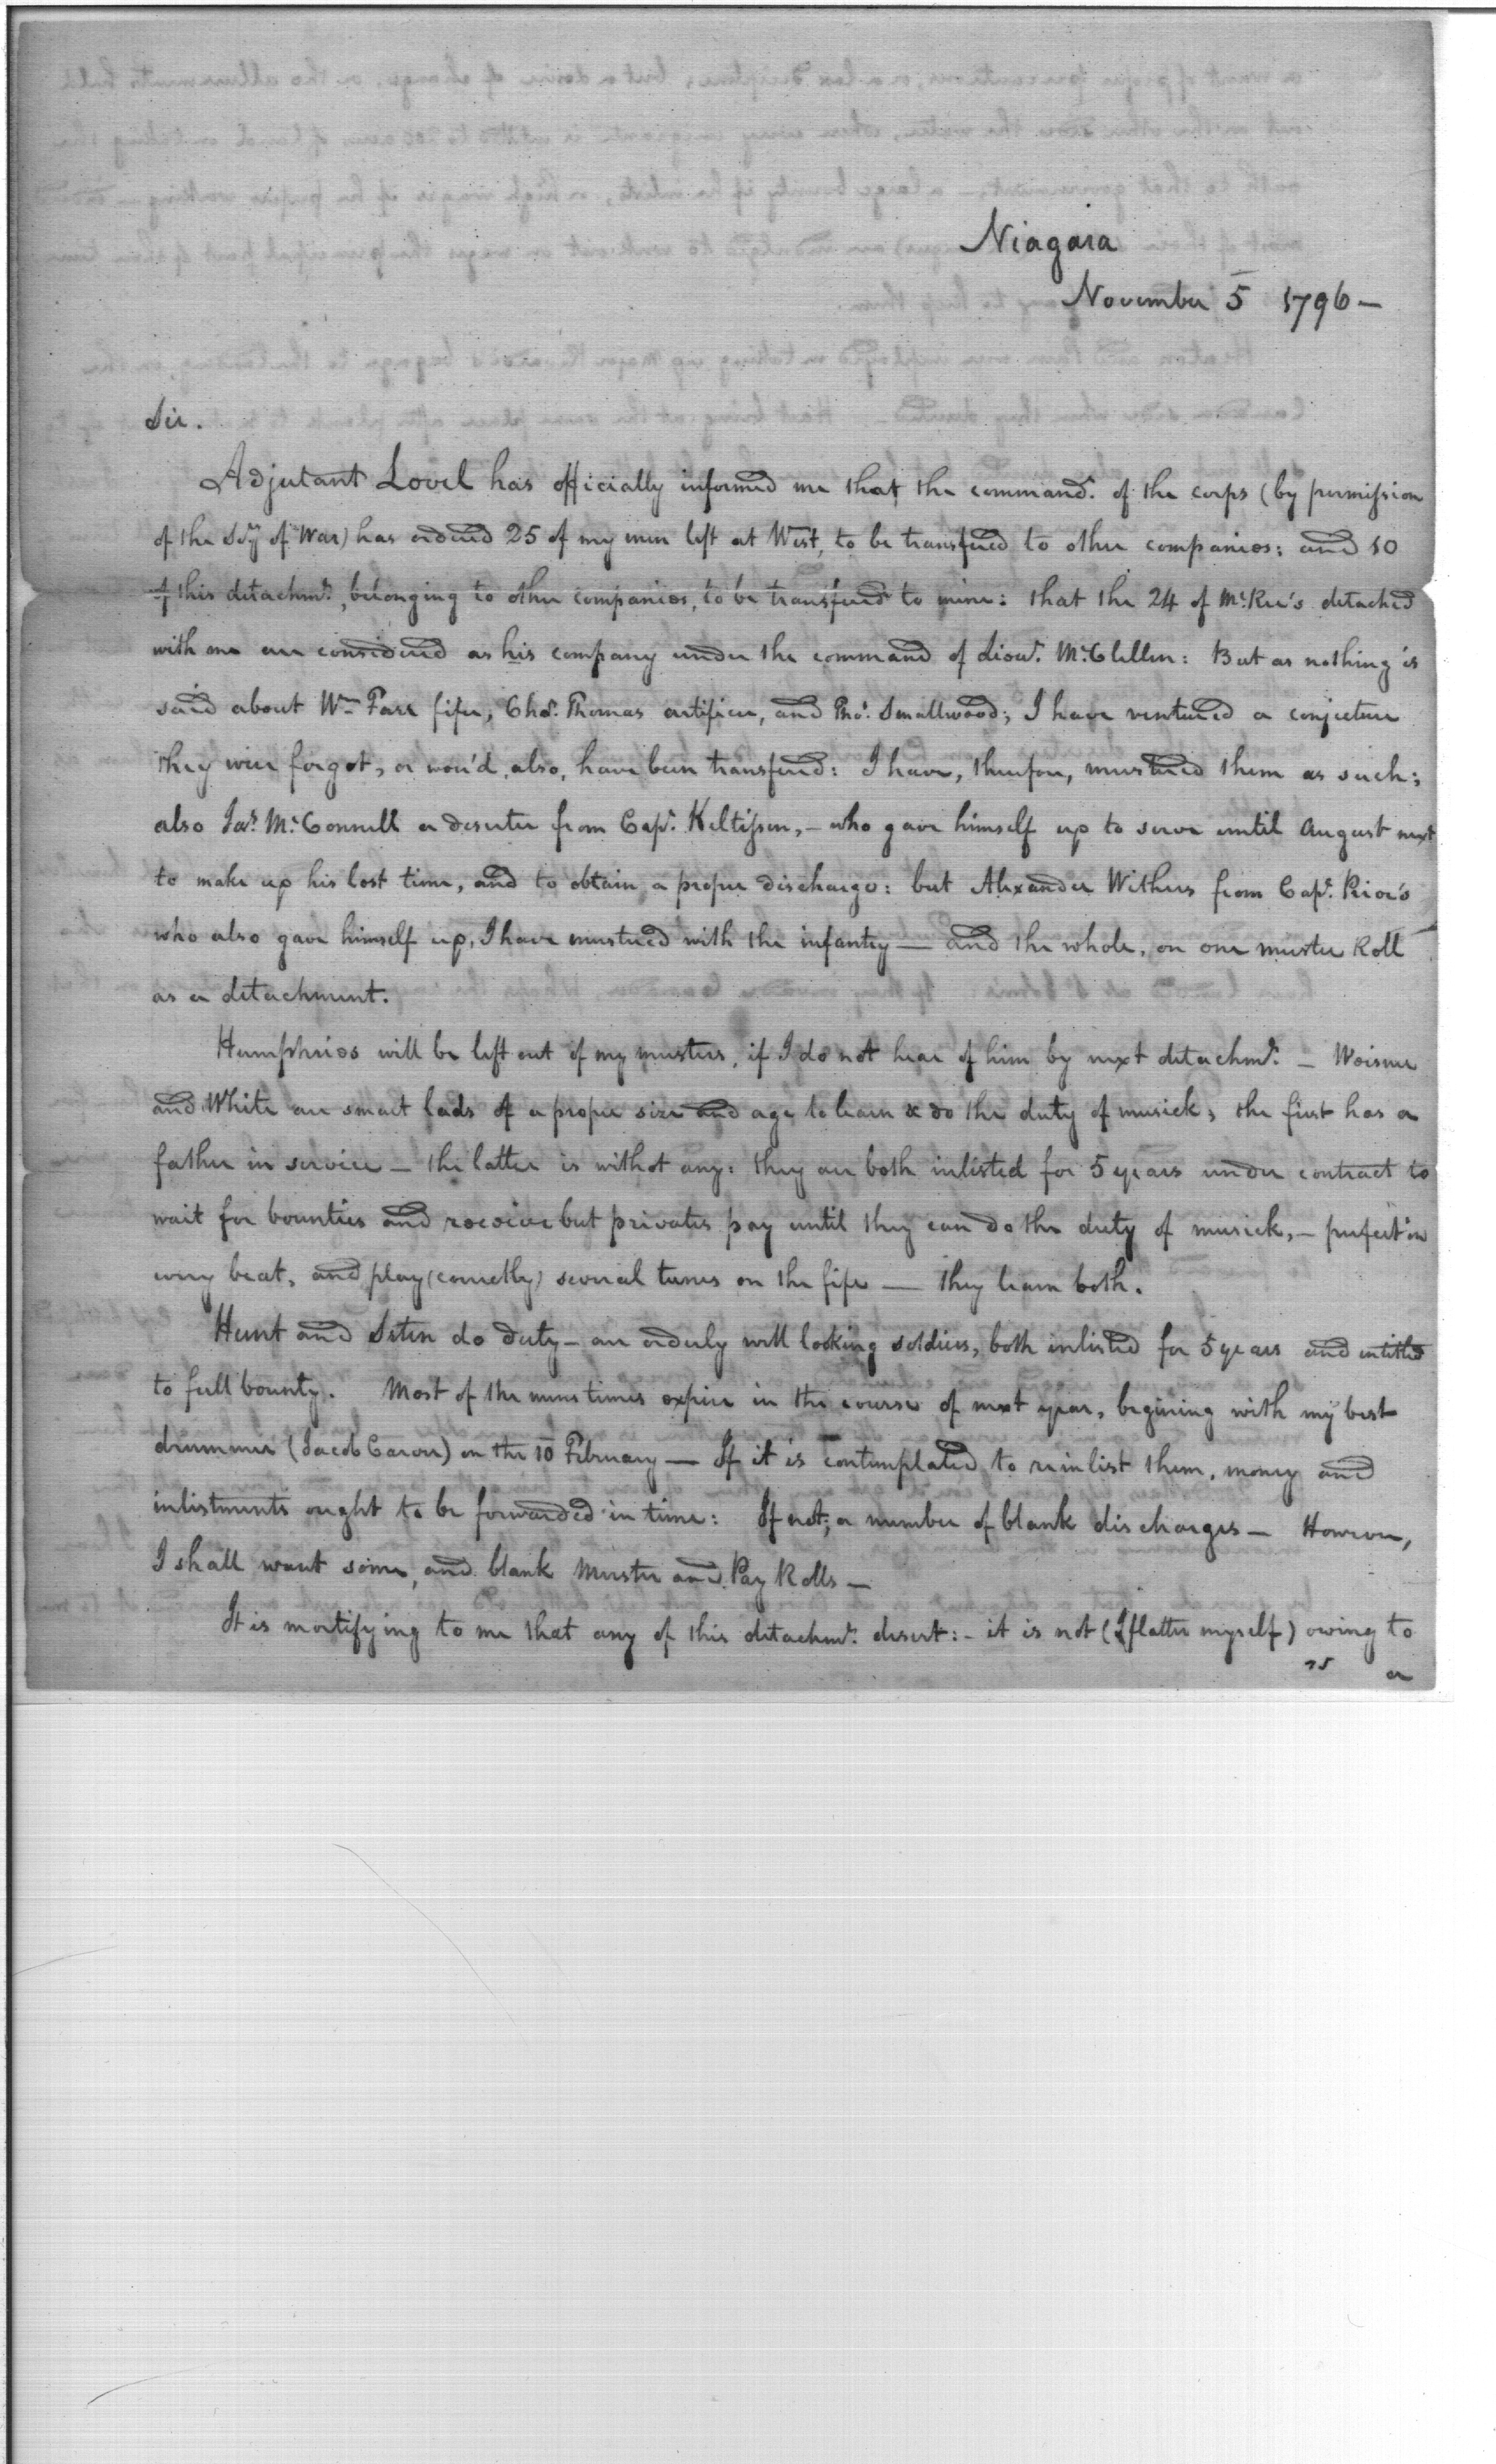 Niagara
November 5 1796 —
Sir.
Adjutant Lovel has officially informed me that the command.t of the corps (by permission
of the Scy of War) has ordered 25 of my men left at West, to be transfered to other companies: and 10
of this detachm.t, belonging to other companies, to be transfered to mine: that the 24 of McKee's detached
with me are considered as his company under the command of Lieu.t McClellen: But as nothing is
said about Wm Farr fifer, Cha.s Thomas artificer, and Tho.s Smallwood; I have ventured a conjecture
they were forgot, or wou'd, also, have been transfered: I have, therefore, mustered them as such;
also Ja.s McConnell a deserter from Cap.t Keltisson, – who gave himself up to serve until August next
to make up his lost time, and to obtain a proper discharge: but Alexander Withers from Cap.t Prior's
who also gave himself up, I have mustered with the infantry — and the whole, on one muster Roll
as a detachment.
Humphries will be left out of my musters, if I do not hear of him by next detachm.t – Weisner
and White are smart lads of a proper size and age to learn & do the duty of musick, the first has a
father in service – the latter is without any: they are both inlisted for 5 years under contract to
wait for bounties and receive but privates pay until they can do the duty of musick, – perfect in
every beat, and play (correctly) several tunes on the fife — they learn both.
Hunt and do duty – are orderly well looking soldiers, both inlisted for 5 years and intitled
to full bounty. Most of the mens times expire in the course of next year, begining with my best
drummer (Jacob Carver) on the 10 February — If it is contemplated to reinlist them, money and
inlistments ought to be forwarded in time: If not; a number of blank discharges — However,
I shall want some, and blank Muster and Pay Rolls —
It is mortifying to me that any of this detachm.t desert: – it is not (I flatter myself) owing to
a